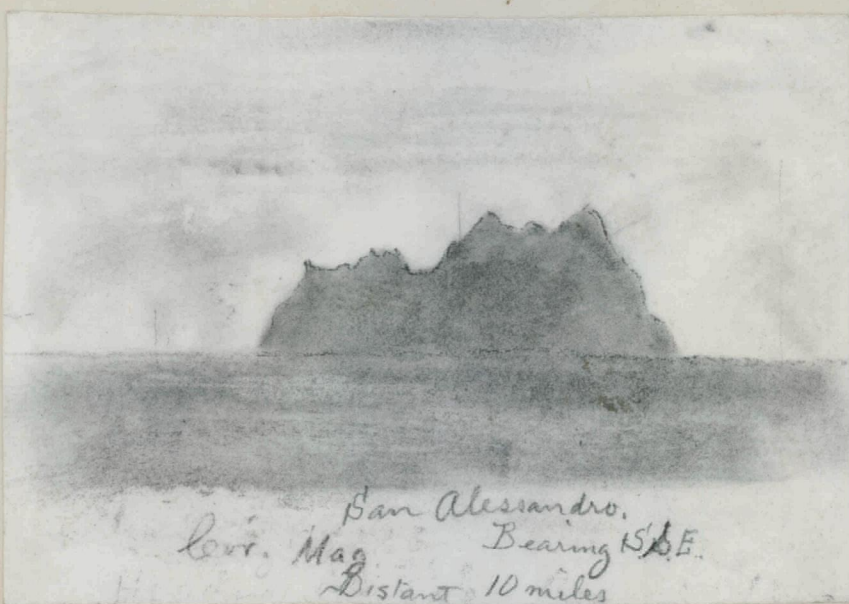 San Alessandro.
Cor. Mag. Bearing S.S.E.
Distant 10 miles